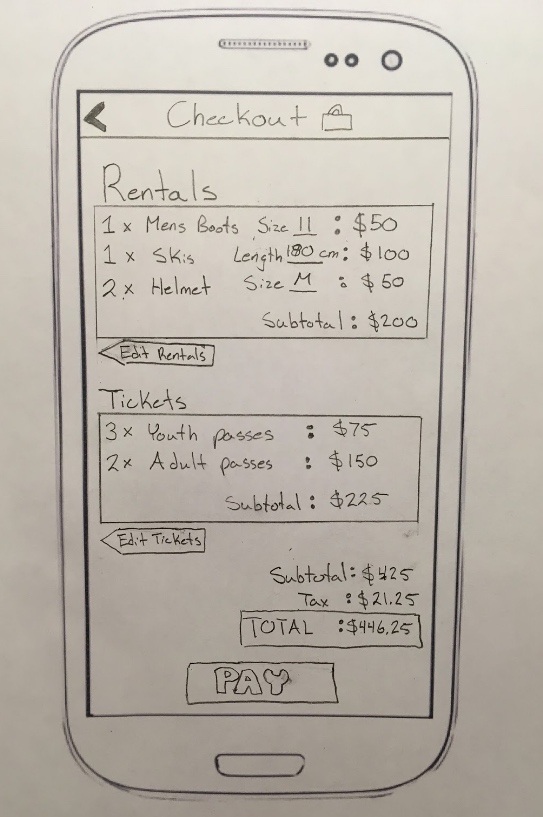 Checkout
Rentals
1 x Mens Boots Size 11 : $50
1 x Skis Length 180 cm : $100
2 x Helmet Size M : $50
Subtotal : $200
Edit Rentals
Tickets
3 x Youth passes : $75
2 x Adult passes : $150
Subtotal : $225
Edit Tickets
Subtotal : $425
Tax : $21.25
TOTAL : $446.25
PAY